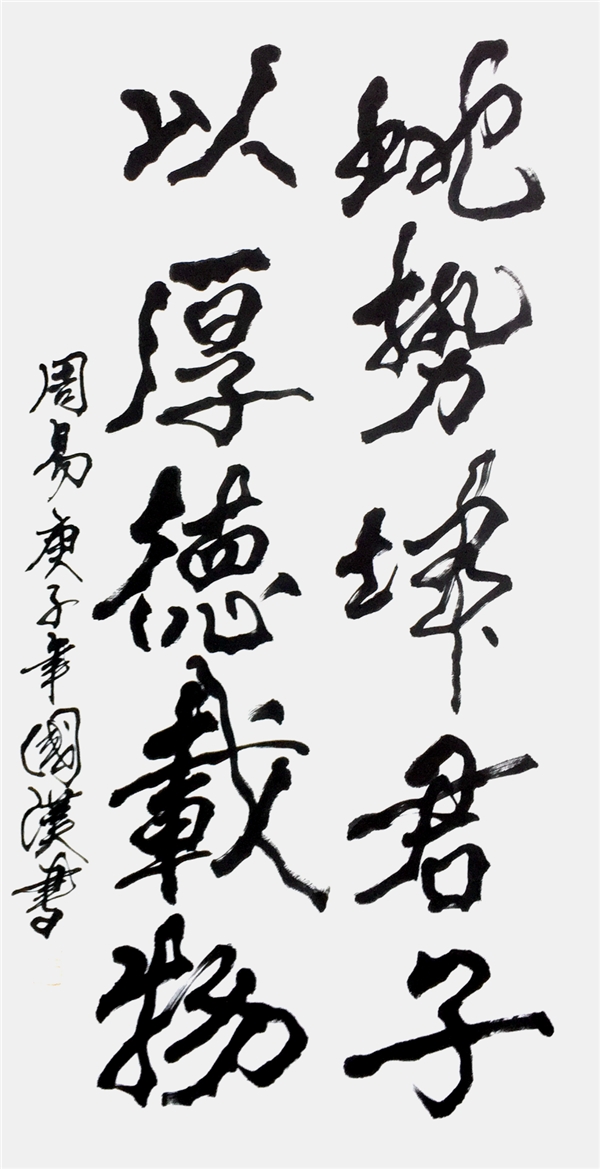 地勢坤君子
以厚德載物
周易庚子年國漢書